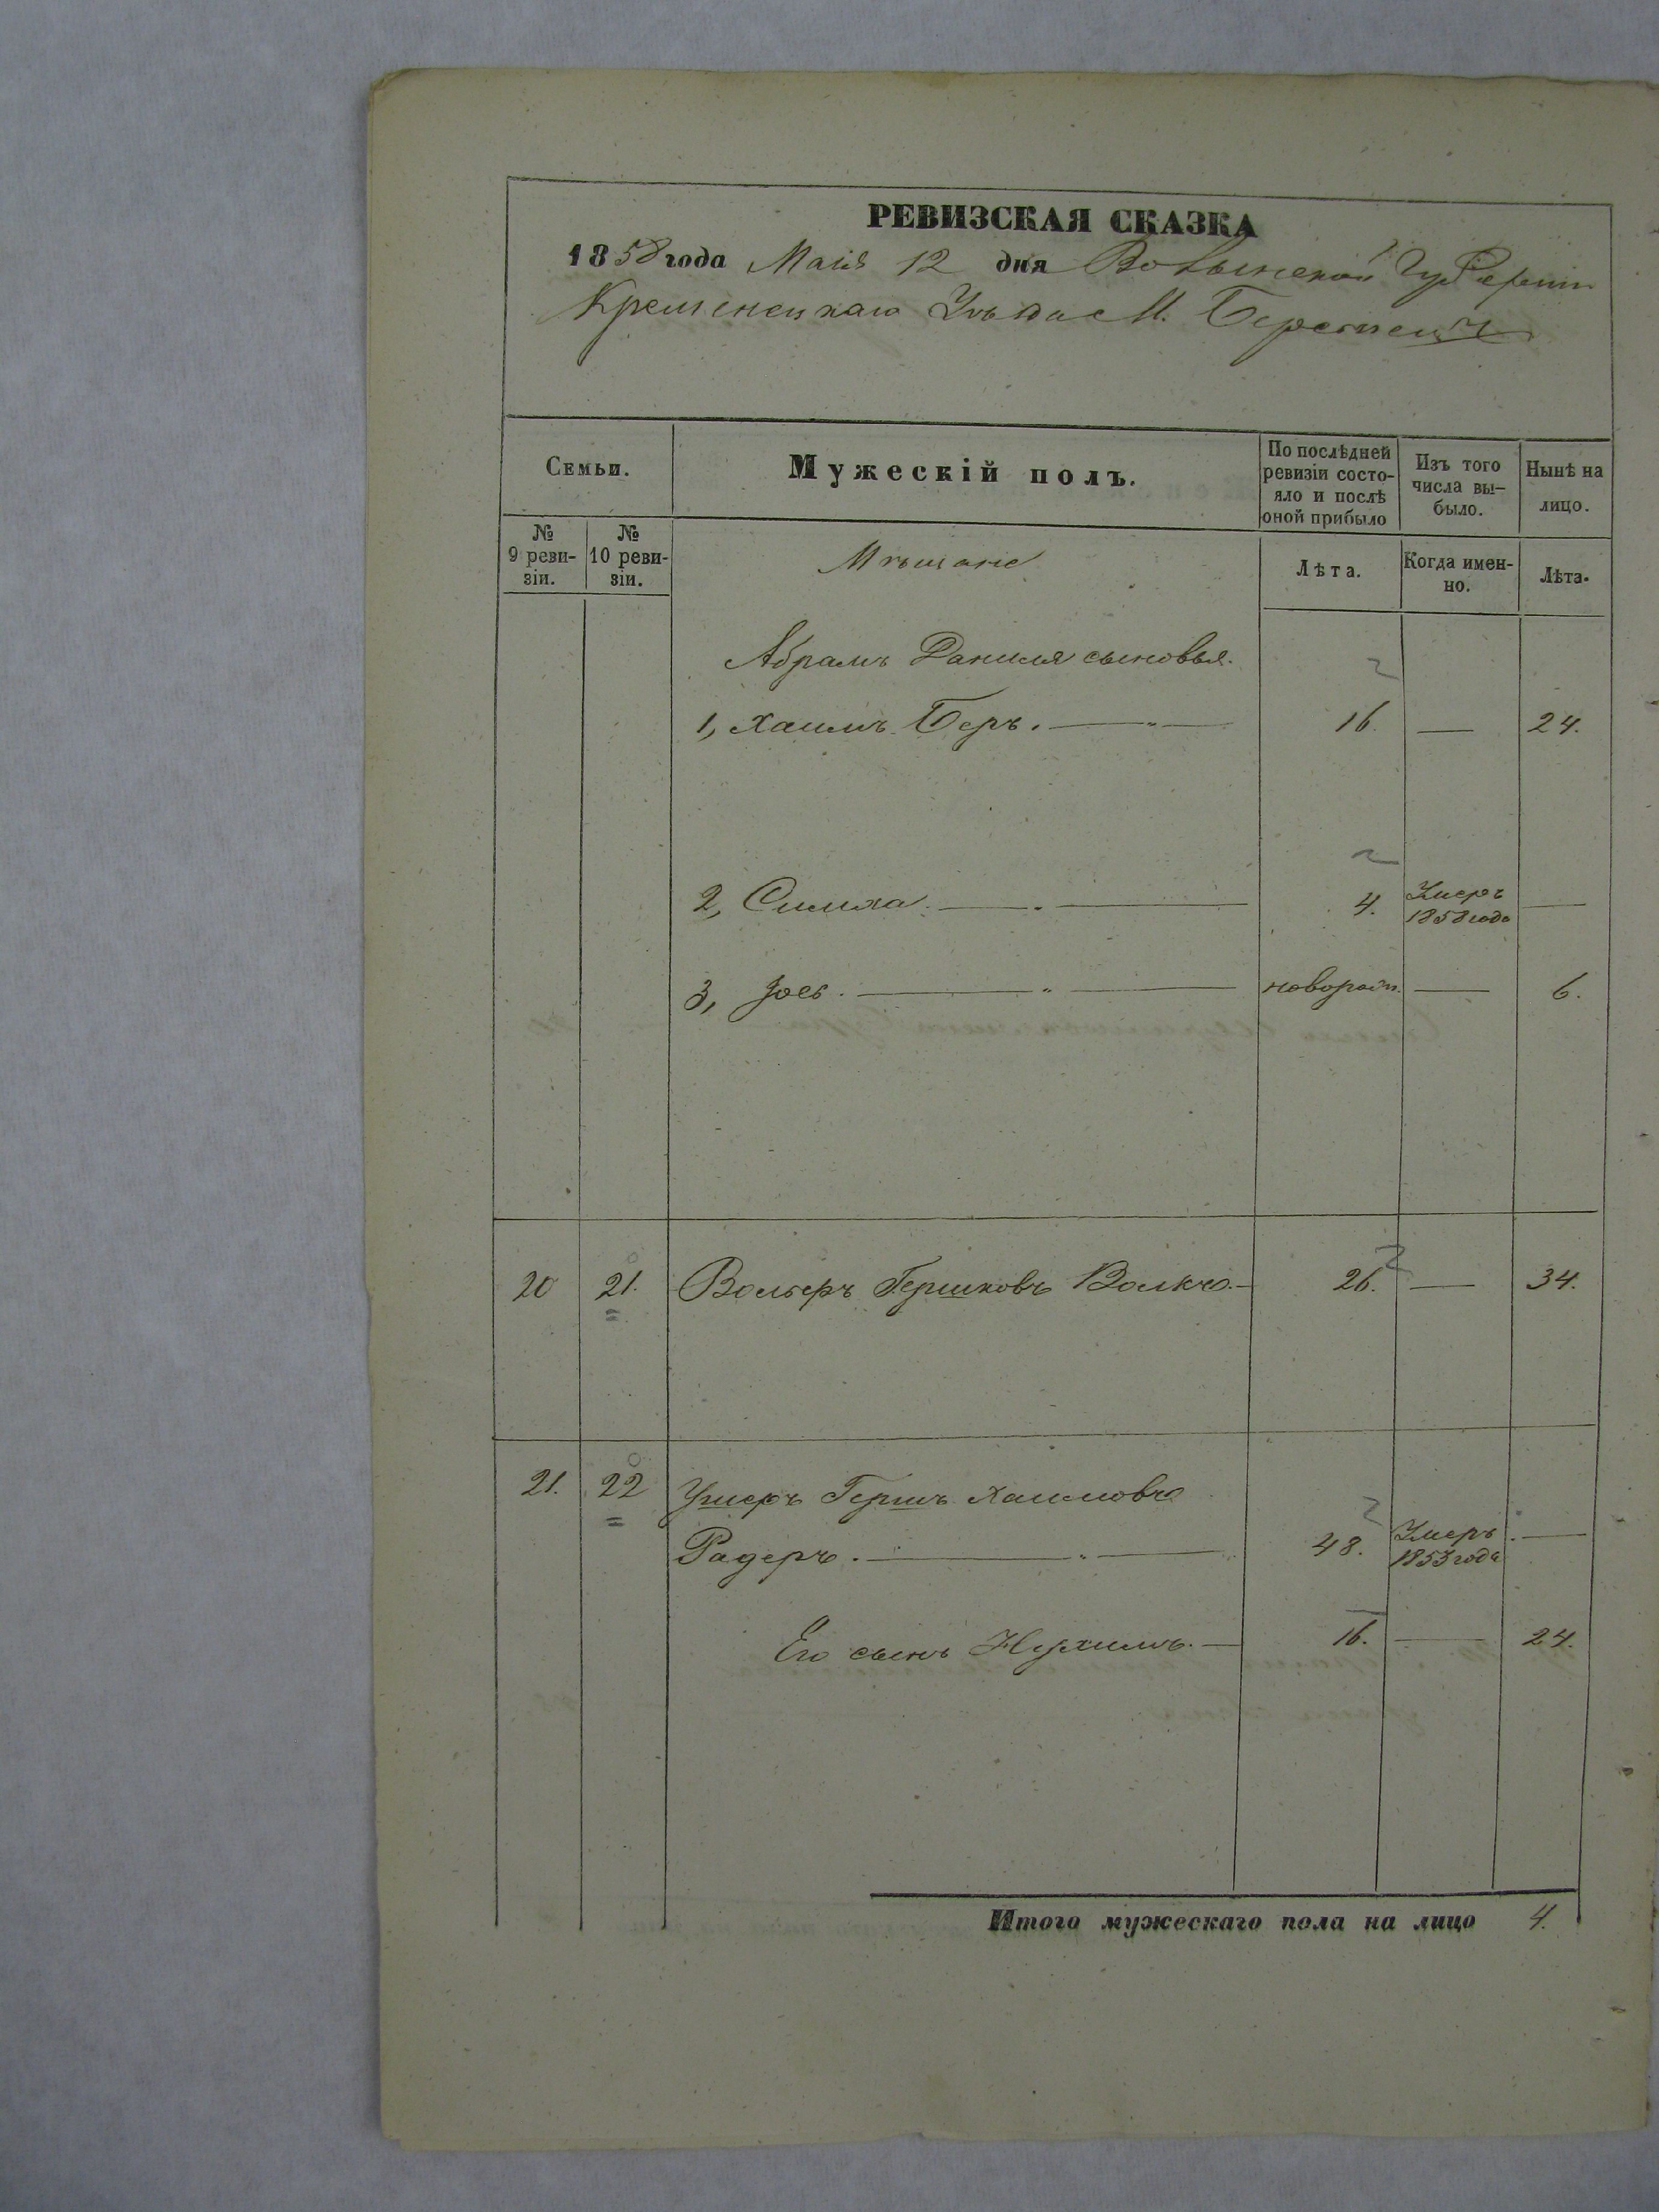 РЕВИЗСКАЯ СКАЗКА
1858 года Маія 12 дня Волынской Губерніи
Кременецкаго Уѣзда М. Берестечк
Семьи.
Мужескій полъ.
По послѣдней ревизіи состо-
яло и послѣ
оной прибыло
Изъ того
числа вы-
было.
Нынѣ на
лицо.
№
9 реви-
зіи.
№
10 реви-
зіи.
Мѣщане
Лѣта.
Когда имен-
но.
Лѣта.
Абрамъ Даниля сыновья.
1, Хаимъ Беръ. — 16. — 24.
2, Симха. — 4. Умеръ
1858 года —
3, Іось. — новорож. — 6.
20 21. Вольберъ Гершковъ Волкъ. — 26. — 34.
21. 22 Ушеръ Гершъ Хаимовъ
Радеръ. — 48. Умеръ
1853 года —
Его сынъ Нухимъ. — 16. — 24.
Итого мужескаго пола на лицо 4.